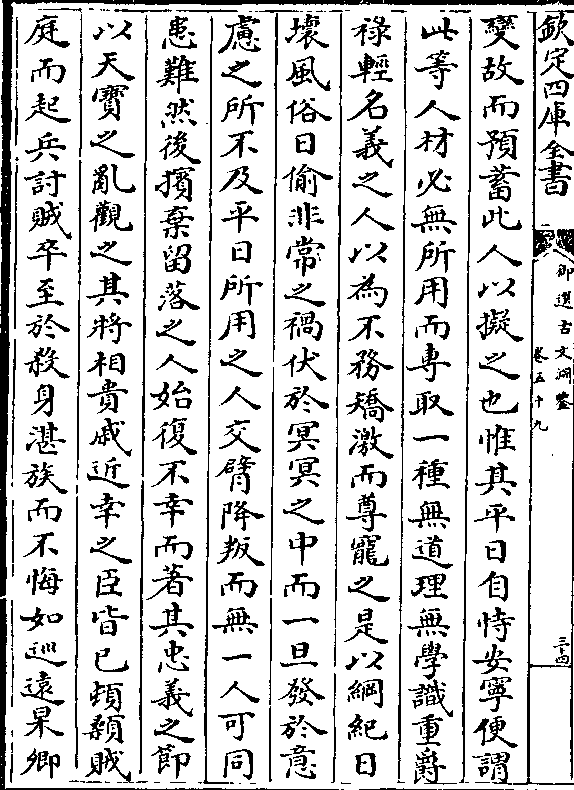 欽定四庫全書
御選古文淵鑒
卷五十九
三十四
變故而預蓄此人以擬之也惟其平日自恃安寧便謂
此等人材必無所用而專取一種無道理無學識重爵
祿輕名義之人以為不務矯激而尊寵之是以綱紀日
壞風俗日偷非常之禍伏於冥冥之中而一旦發於意
慮之所不及平日所用之人交臂降叛而無一人可同
患難然後擯棄留落之人始復不幸而著其忠義之節
以天寶之亂觀之其將相貴戚近幸之臣皆已頓顙賊
庭而起兵討賊卒至於殺身湛族而不悔如巡遠杲卿